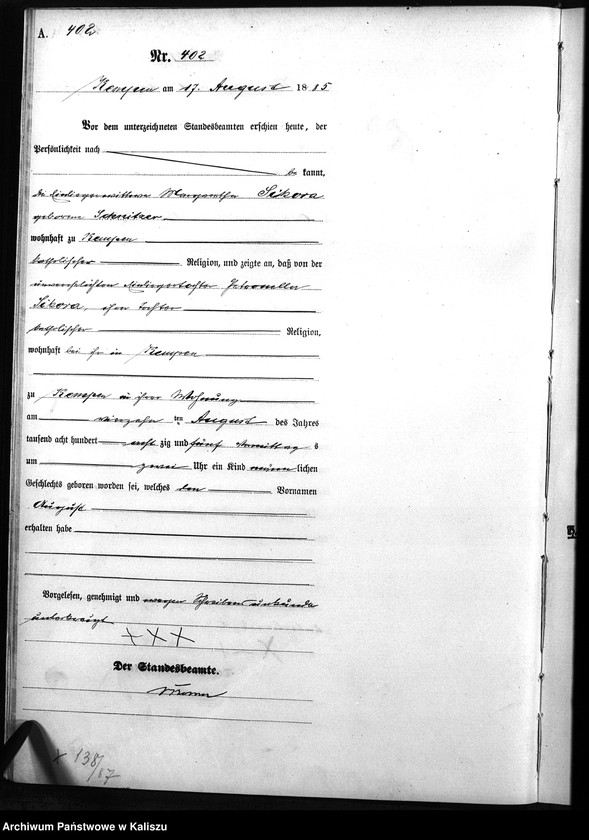 A. 402
Nr. 402
Kempen am 17. August 1885
Vor dem unterzeichneten Standesbeamten erschien heute, der
Persönlichkeit nach
be kannt,
die Margaretha Sikora
geborene
wohnhaft zu Kempen
katholischer Religion, und zeigte an, daß von der
unverehelichten Petronella
Sikora, ihrer Tochter
katholischer Religion,
wohnhaft bei ihr in Kempen
zu Kempen in ihrer Wohnung
am vierzehn ten August des Jahres
tausend acht hundert acht zig und fünf Vormittag s
um zwei Uhr ein Kind männlichen
Geschlechts geboren worden sei, welches den Vornamen
August
erhalten habe
Vorgelesen, genehmigt und wegen Schreibens unkunde
unterkreuzt
+++
Der Standesbeamte.
+ 138/87
Archiwum Państwowe w Kaliszu